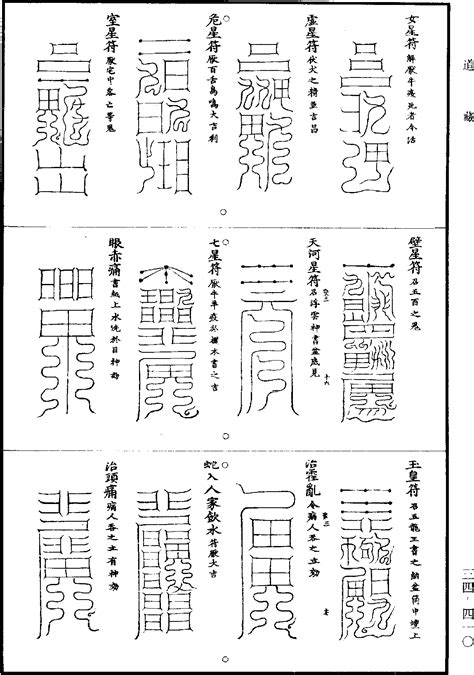 道藏
女星符 解厭牛疫死者令活
虛星符 伏火之精並言昌
危星符 厭百舌鳥鳴大吉利
室星符 厭宅中客亡等鬼
壁星符 召五百之鬼
天河星符 召浮雲神書盆底見
十六
七星符 厭牛羊疫於櫃木書之吉
眼赤痛 書紙上水洗於目神効
玉皇符 召五龍王書之納盆筒中壇上
治霍亂 令病人吞之立効
蛇入人家飲水 符厭大吉
治頭痛 病人吞之立有神効
三四-四一〇